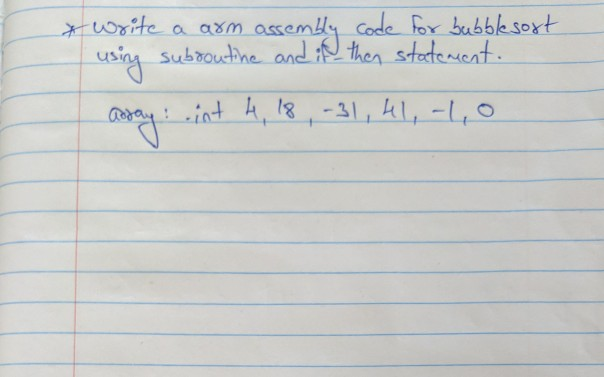 * Write a arm assembly code for bubblesort
using subroutine and if-then statement.
array: .int 4, 18, -31, 41, -1, 0